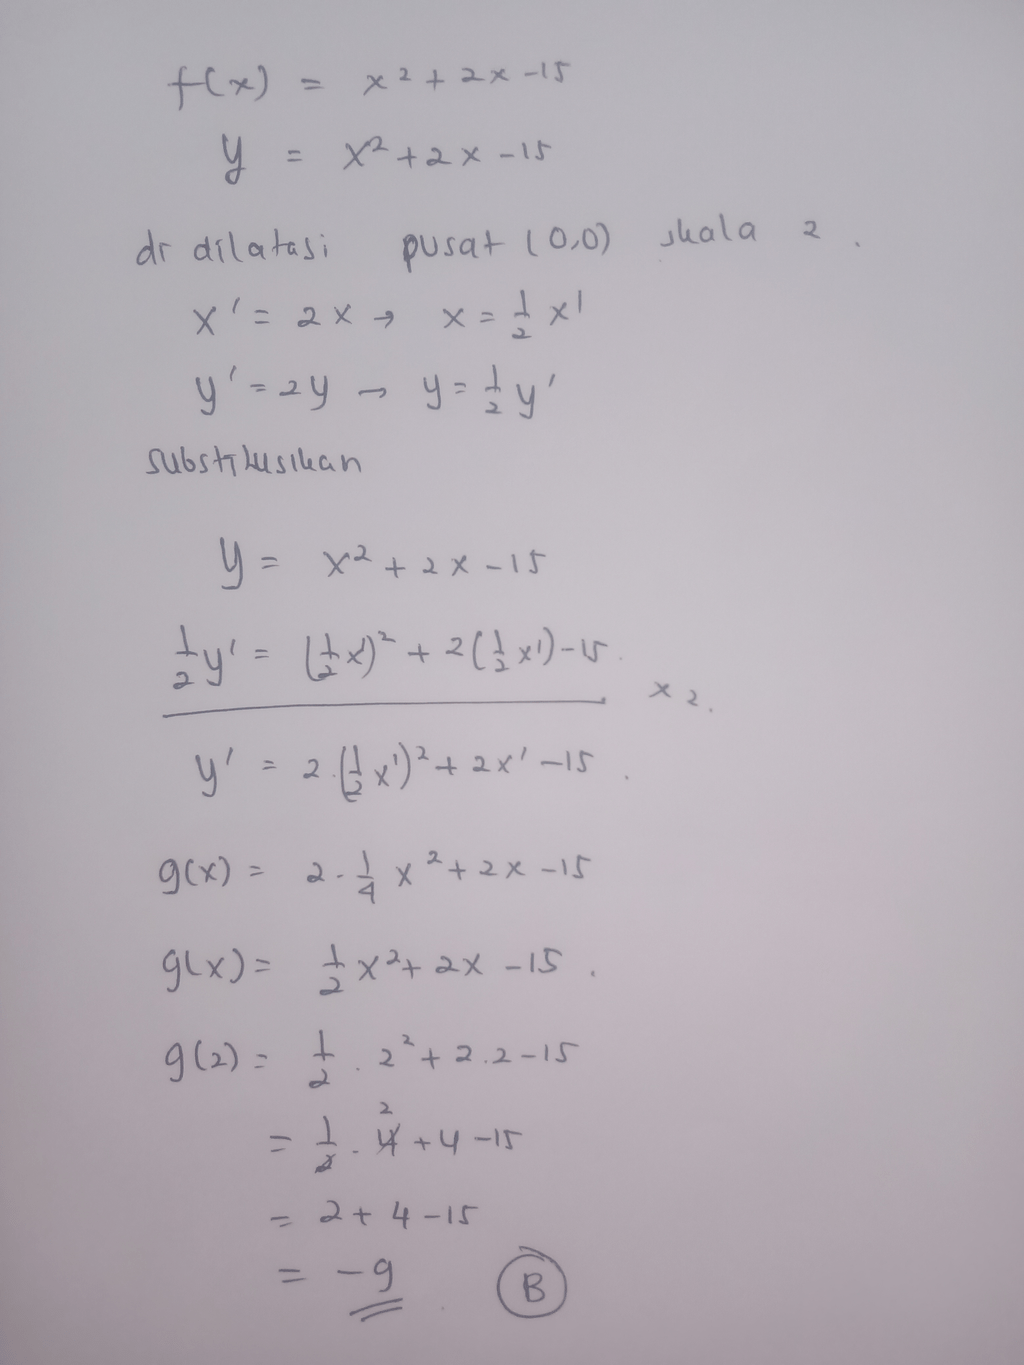 f(x) = x² + 2x - 15
y = x² + 2x - 15
dr dilatasi pusat (0,0) skala 2.
x' = 2x → x = 1/2 x'
y' = 2y → y = 1/2 y'
substitusikan
y = x² + 2x - 15
1/2 y' = (1/2 x')² + 2(1/2 x') - 15. x 2.
y' = 2.(1/2 x')² + 2x' - 15.
g(x) = 2 . 1/4 x² + 2x - 15
g(x) = 1/2 x² + 2x - 15.
g(2) = 1/2 . 2² + 2.2 - 15
= 1/2 . 4 2 + 4 - 15
= 2 + 4 - 15
= -9 B